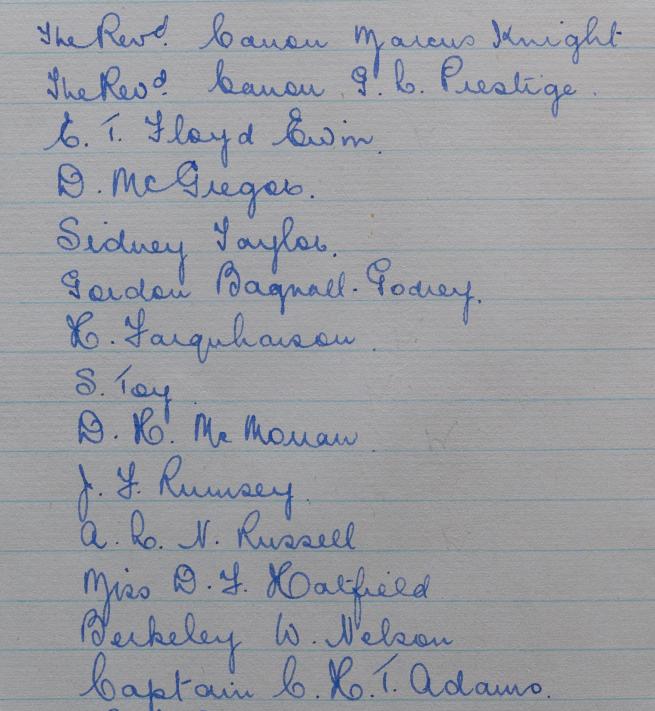 The Revd. Canon Marcus Knight
The Revd. Canon G. L. Prestige.
E. T. Floyd Ewin.
D. McGregor.
Sidney Taylor.
Gordon Bagnall-Godrey.
H. Farquharson.
S. Toy
D. H. McMorran
J. F. Rumsey.
A. L. N. Russell
Miss D. F. Hatfield
Berkeley W. Nelson
Captain C. H. T. Adams.